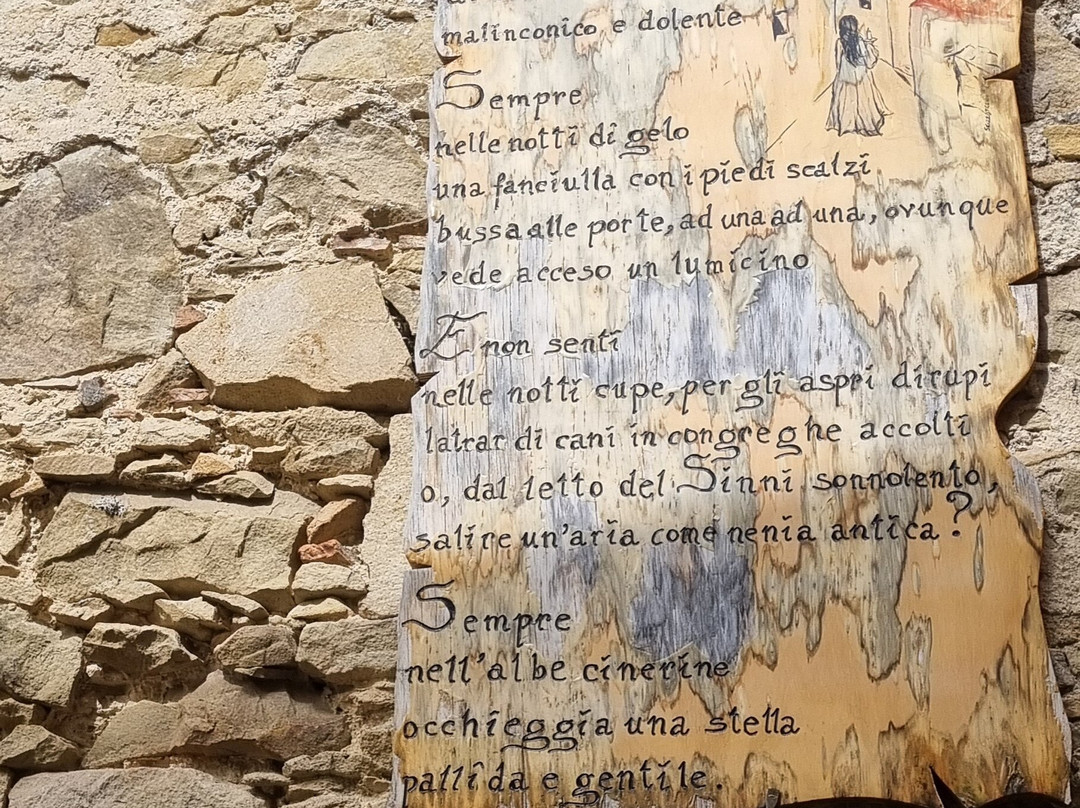 malinconico e dolente
Sempre
nelle notti di gelo
una fanciulla con i piedi scalzi
bussa alle porte, ad una ad una, ovunque
vede acceso un lumicino
E non senti
nelle notti cupe, per gli aspri dirupi
latrar di cani in congreghe accolti
o, dal letto del Sinni sonnolento,
salire un'aria come nenia antica?
Sempre
nell'albe cinerine
occhieggia una stella
pallida e gentile.